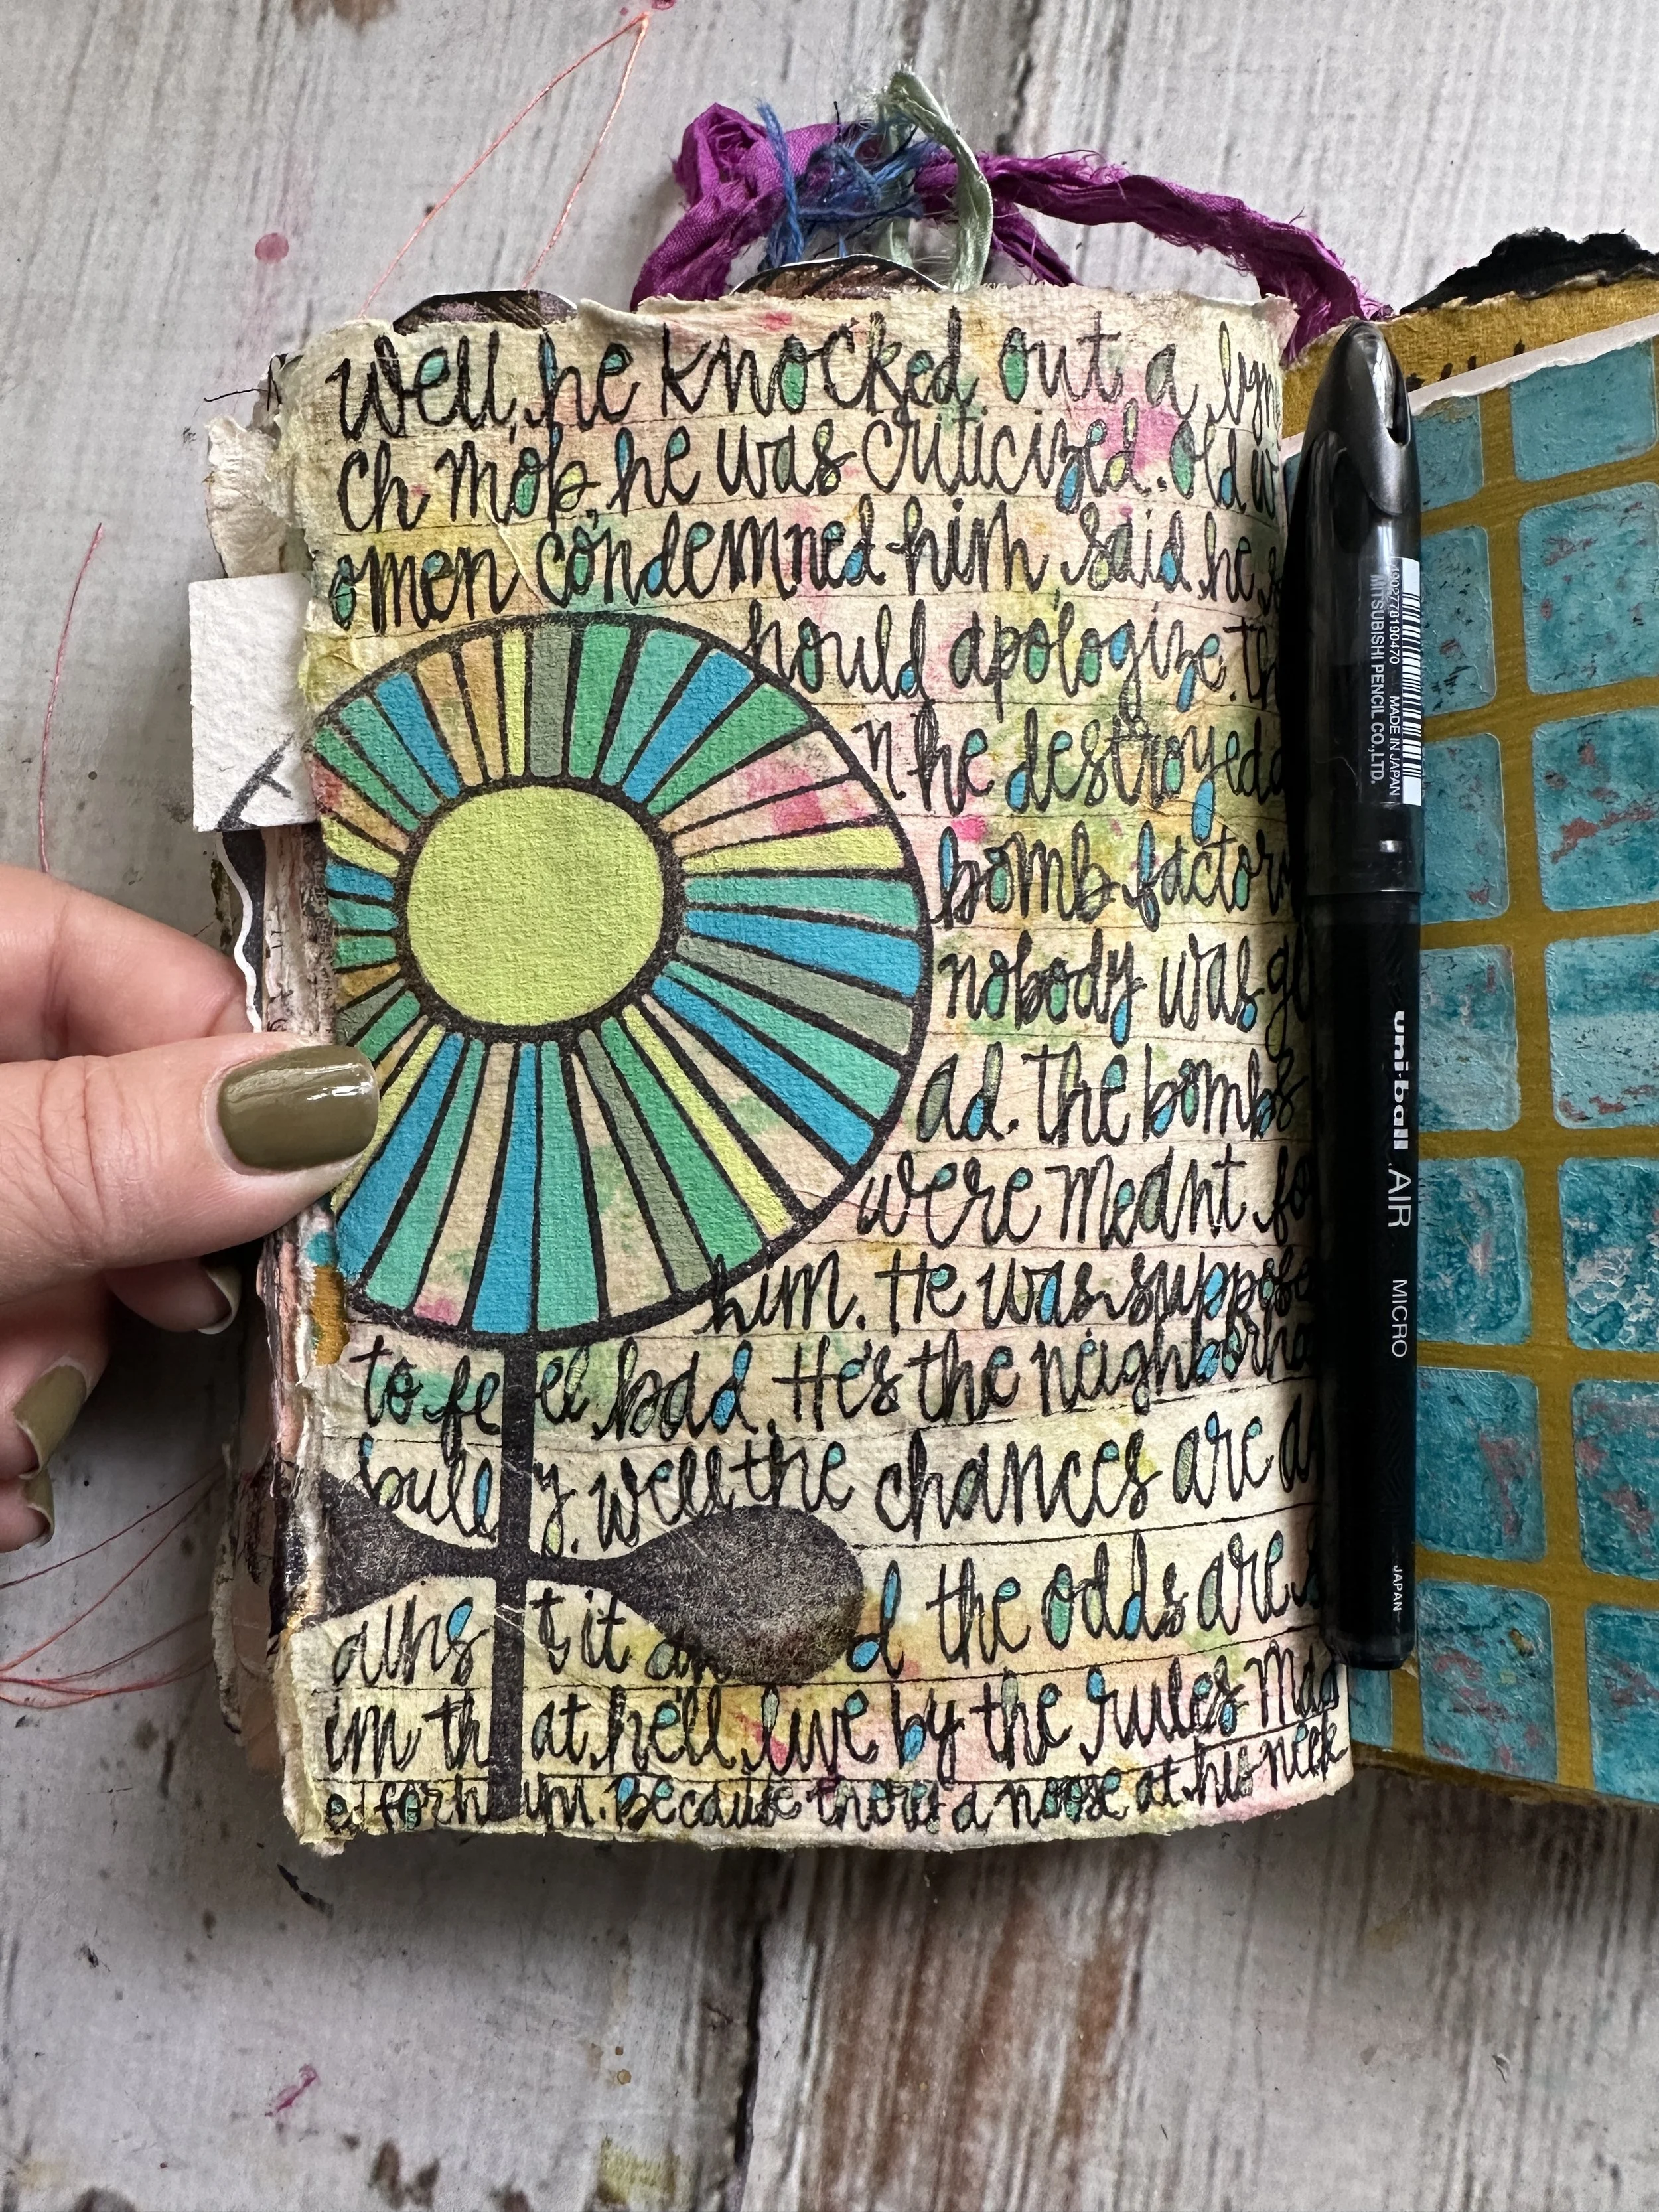 well, he knocked out a lyn
ch mob, he was criticized. Old w
omen condemned him said he s
hould apologize. th
n he destroyed a
bomb factory
nobody was gl
ad. The bombs
were meant fo
him. He was suppose
to feel bad. He's the neighborho
bully. well the chances are a
ains t it and the odds are s
im that he'll live by the rules mad
ed for him. Because there's a noose at his neck
4902778190470 MADE IN JAPAN
MITSUBISHI PENCIL CO., LTD.
uni-ball AIR MICRO JAPAN